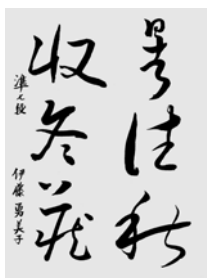 暑往秋
収冬蔵
準七段 伊藤勇美子